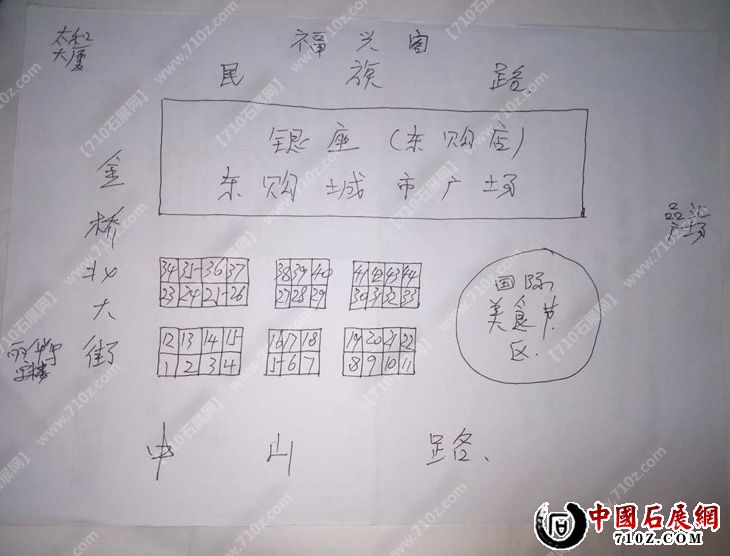 太和
大厦
福兴阁
民族路
银座(东购店)
东购城市广场
金桥北大街
品汇
广场
34 35 36 37
23 24 25 26
38 39 40
27 28 29
41 42 43 44
30 31 32 33
国际
美食节
区.
12 13 14 15
1 2 3 4
16 17 18
5 6 7
19 20 21 22
8 9 10 11
中山路、
【710石展网】
www.710z.com
中國石展網
710Z.COM